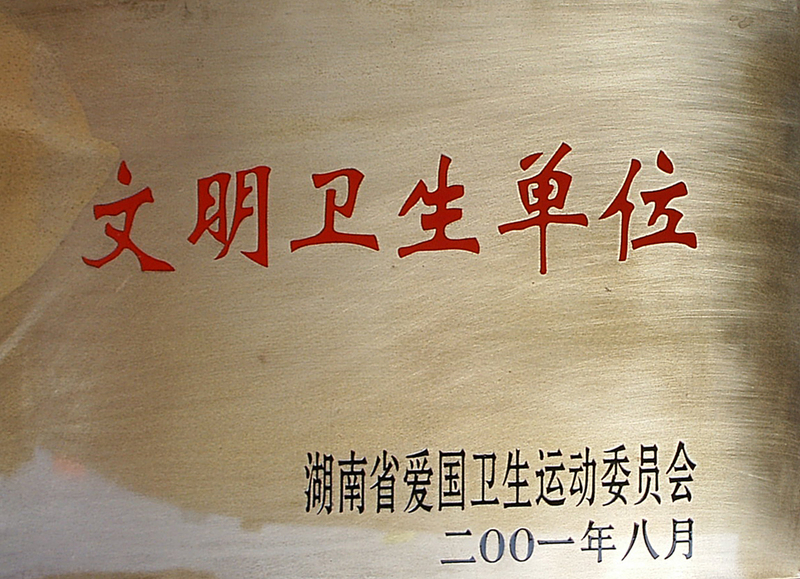 文明卫生单位
湖南省爱国卫生运动委员会
二OO一年八月